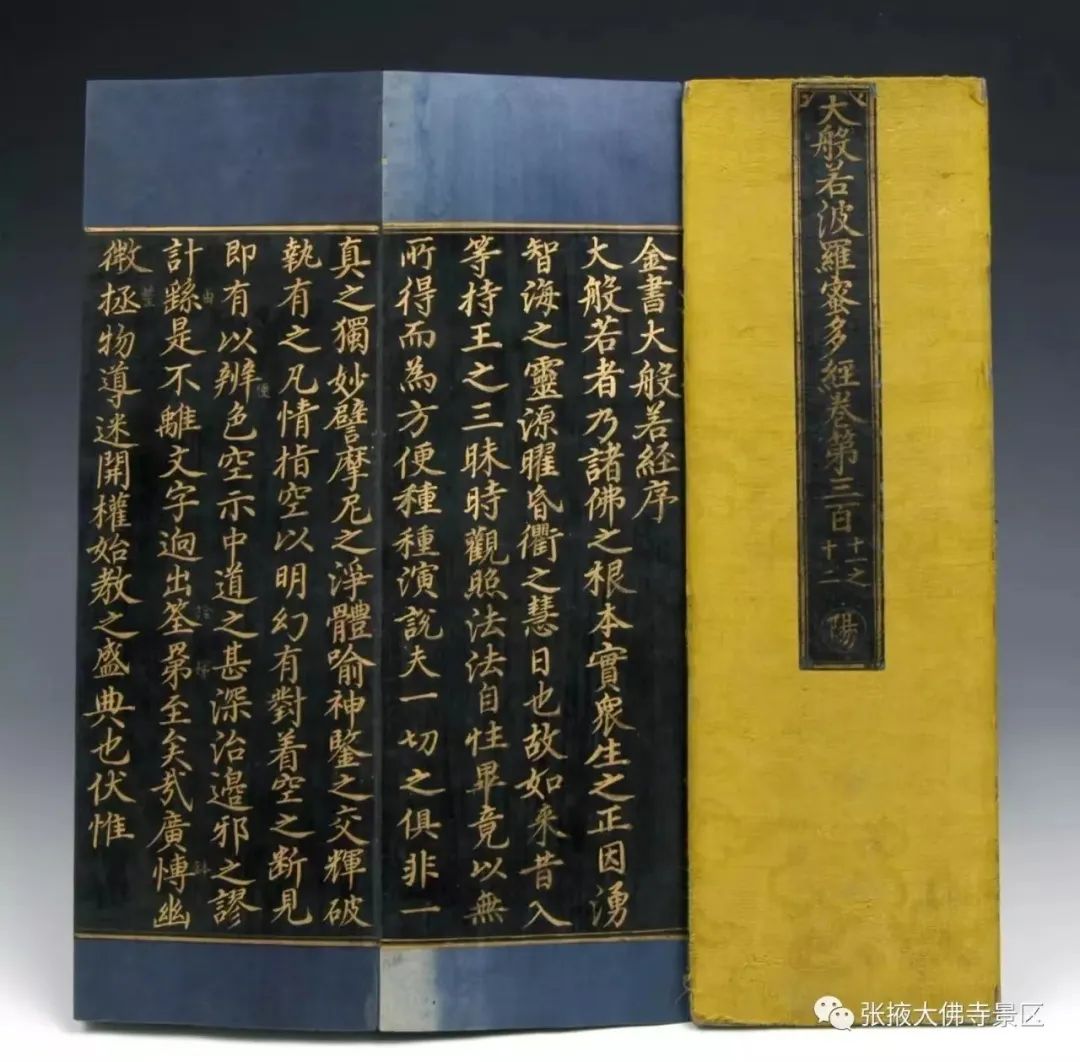 大般若波羅蜜多經卷第三百
十一之
十二
陽
金書大般若経序
大般若者乃諸佛之根本實眾生之正因湧
智海之靈源曜昏衢之慧日也故如来昔入
等持王之三昧時觀照法法自性畢竟以無
所得而為方便種種演說夫一切之俱非一
真之獨妙譬摩尼之淨體喻神鑒之交輝破
執有之凡情指空以明幻有對着空之断見
即有以辨色空示中道之甚深治邉邪之謬
計繇是不離文字逈出筌第至矣㢤廣慱幽
微拯物導迷開權始教之盛典也伏惟
张掖大佛寺景区